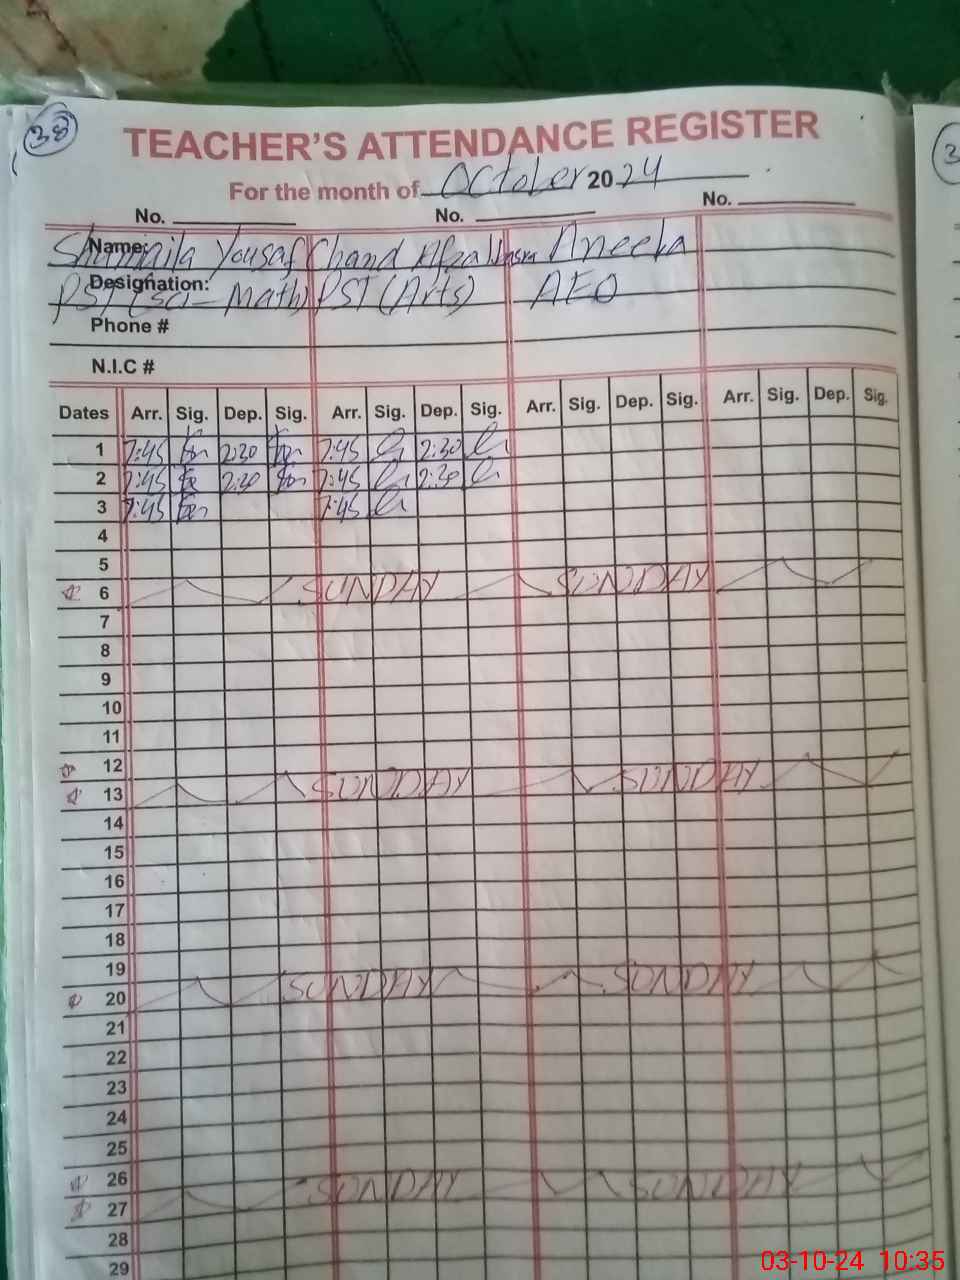 38
TEACHER'S ATTENDANCE REGISTER
For the month of October 2024
No. No. No.
Name: Shumaila Yousaf Chand Afzal Aneela
Designation: PST (Sci-Math) PST (Arts) AEO
Phone #
N.I.C #
Dates Arr. Sig. Dep. Sig. Arr. Sig. Dep. Sig. Arr. Sig. Dep. Sig. Arr. Sig. Dep. Sig.
1 7:45 2:30 7:45 2:30
2 7:45 2:30 7:45 2:30
3 7:45 7:45
4
5
6 SUNDAY SUNDAY
7
8
9
10
11
12
13 SUNDAY SUNDAY
14
15
16
17
18
19
20 SUNDAY SUNDAY
21
22
23
24
25
26
27 SUNDAY SUNDAY
28
29
03-10-24 10:35